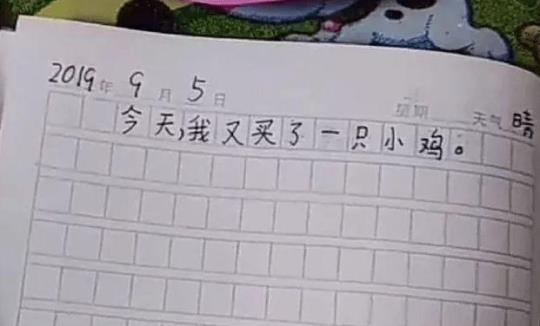 2019年 9月 5日 星期 天气 晴
今天,我又买了一只小鸡。